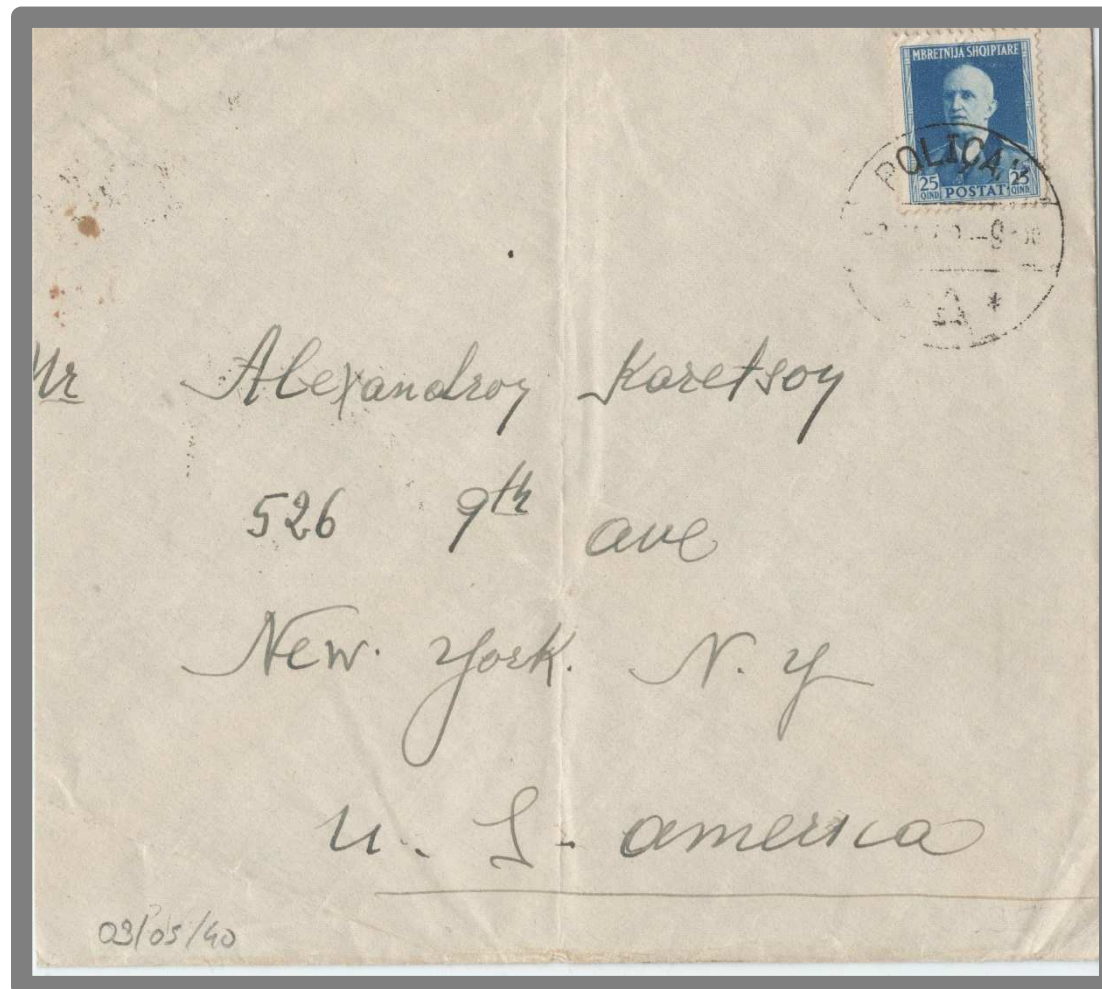 MBRETNIJA SHQIPTARE
25 QIND POSTAT 25 QIND
POLIÇAN
A *
Mr Alexandroy Karetsoy
526 9th ave
New. York. N. Y
U. S. america
03/05/40